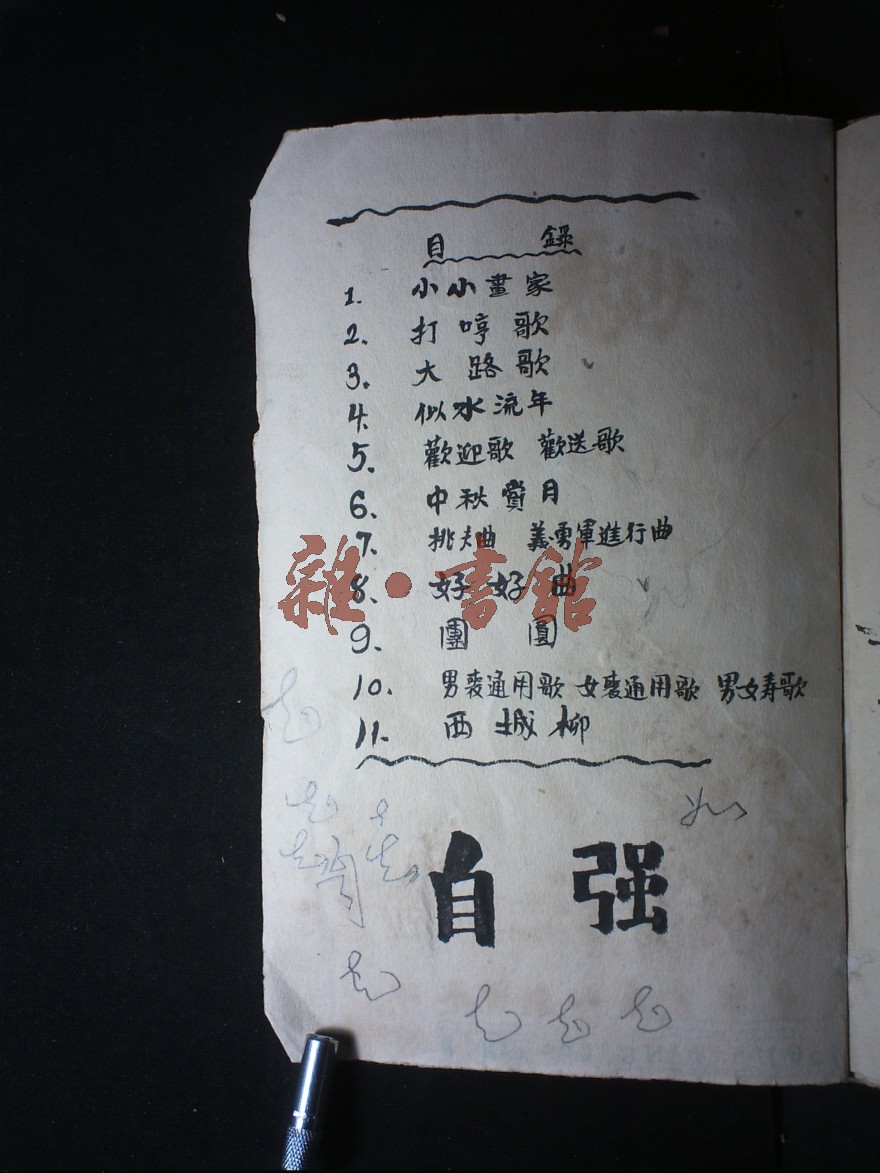 目 錄
1. 小小畫家
2. 打哼歌
3. 大路歌
4. 似水流年
5. 歡迎歌 歡送歌
6. 中秋賞月
7. 挑夫曲 義勇軍進行曲
雜·書館
8. 好好曲
9. 團圓
10. 男喪通用歌 女喪通用歌 男女寿歌
11. 西城柳
如
自强